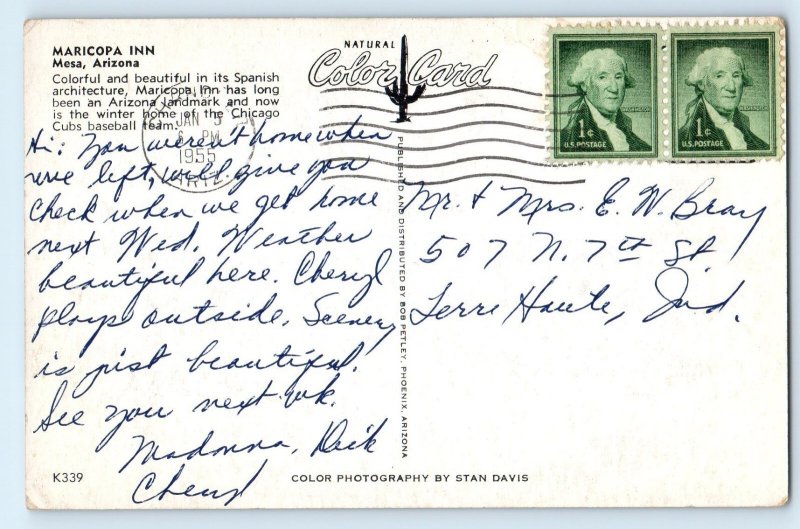 MARICOPA INN
Mesa, Arizona
Colorful and beautiful in its Spanish
architecture, Maricopa Inn has long
been an Arizona landmark and now
is the winter home of the Chicago
Cubs baseball team.
NATURAL
Color Card
JAN 5
6 PM
1955
ARIZ.
1¢
U.S. POSTAGE
1¢
U.S. POSTAGE
Hi: You weren't home when
we left, will give you
check when we get home
next Wed. Weather
beautiful here. Cheryl
plays outside. Scenery
is just beautiful.
See you next wk.
Madonna, Dick
Cheryl
PUBLISHED AND DISTRIBUTED BY BOB PETLEY, PHOENIX, ARIZONA
Mr. + Mrs. E. W. Bray
507 N. 7th St
Terre Haute, Ind.
K339
COLOR PHOTOGRAPHY BY STAN DAVIS